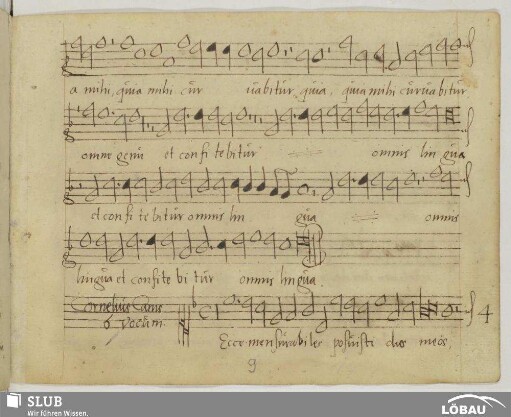 a mihi, quia mihi cur uabitur, quia, quia mihi curuabitur
omne genu et confitebitur omnis lingua
et confitebitur omnis lin gua omnis
lingua et confitebitur omnis lingua.
Cornelius Canis
6 Vocum.
4
Ecce mensurabiles posuisti dies meos,
9
SLUB
Wir führen Wissen.
LÖBAU